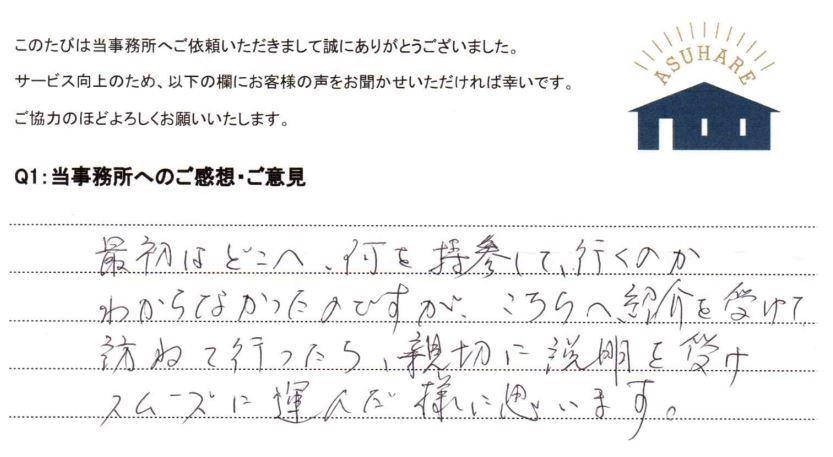 このたびは当事務所へご依頼いただきまして誠にありがとうございました。
サービス向上のため、以下の欄にお客様の声をお聞かせいただければ幸いです。
ご協力のほどよろしくお願いいたします。
ASUHARE
Q1:当事務所へのご感想・ご意見
最初はどこへ、何を持参して、行くのか
わからなかったのですが、こちらへ紹介を受けて、
訪ねて行ったら、親切に説明を受け
スムーズに運んだ様に思います。